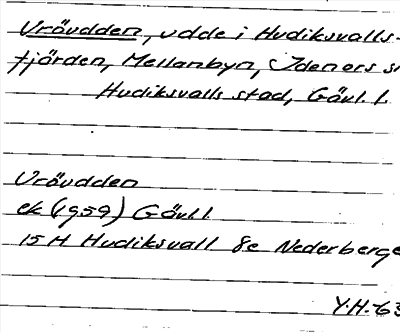 Vråudden, udde i Hudiksvalls-
fjärden, Mellanbyn, Idenors sn
Hudiksvalls stad, Gävl. l.
Vråudden
ek (1959) Gävl l
15 H Hudiksvall 8e Nederberge
Y.H.-63